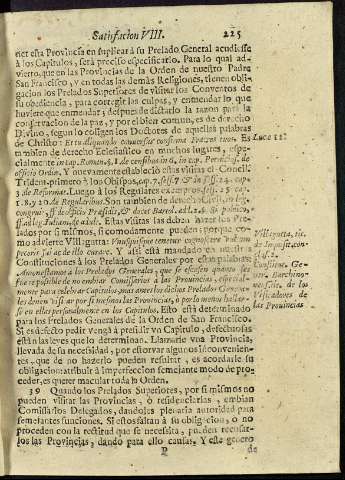 Satisfacion VIII. 225
ner esta Provincia en suplicar à su Prelado General acudiesse
à los Capitulos, serà preciso especificarlo. Para lo qual ad-
vierto, que en las Provincias de la Orden de nuestro Padre
San Francisco, y en todas las demàs Religiones, tienen obli-
gacion los Prelados Superiores de visitar los Conventos de
su obediencia, para corregir las culpas, y enmendar lo que
huviere que enmendar; despues de dictarlo la razon para la
conservacion de la paz, y por el bien comun, es de derecho
Divino, segun lo coligen los Doctores de aquellas palabras
de Christo: Et tu aliquando conversus confirma Fratres tuos. Es
tambien de derecho Eclesiastico en muchos lugares, espe-
cialmente in cap. Romana, §. 1. de censibus in 6. in cap.
officio Ordin. Y nuevamente establecio estas visitas el Conci-
Trident. primero à los Obispos, cap. 7. sess. 7.
3 de Reformat. Luego à los Regulares
de Regularibus. Son tambien de derecho Civil, in leg.
congruit, ff. de officio Præsidis, &
Estas visitas las deben hazer los Pre-
lados por si mismos, si comodamente pueden; porque co-
mo advierte Villagutta: Unusquisque tenetur cognoscere vultum
pecoris sui ab ille curare. Y assi està mandado en nuestras
Constituciones à los Prelados Generales por estas palabras:
Amonestamos à los Prelados Generales, que se escusen quanto les
fue re possible de no embiar Comissarios à las Provincias, especial-
mente para celebrar Capitulos; mas antes los dichos Prelados Genera-
les deben visitar por si mesmos las Provincias, ò por lo menos hallar-
se en ellas personalmente en los Capitulos. Esto està determinado
para los Prelados Generales de la Orden de San Francisco.
Si es defecto pedir vengà à presidir un Capitulo, defectuosas
estàn las leyes que lo determinan. Llamarle una Provincia,
llevada de su necessidad, por estorvar algunos inconvenien-
tes, que de no hazerlo pueden resultar, es acordarle su
obligacion: atribuir à imperfeccion semejante modo de pro-
ceder, es querer macular toda la Orden.
39 Quando los Prelados Superiores, por si mismos no
pueden visitar las Provincias, ò residenciarlas, embian
Comissarios Delegados, dandoles plenaria autoridad para
semejantes funciones. Si estos faltan à su obligacion, ò no
proceden con la rectitud que se necessita, pueden recusar-
los las Provincias, dando para ello causas. Y este genero
P de
Villagutta, tit.